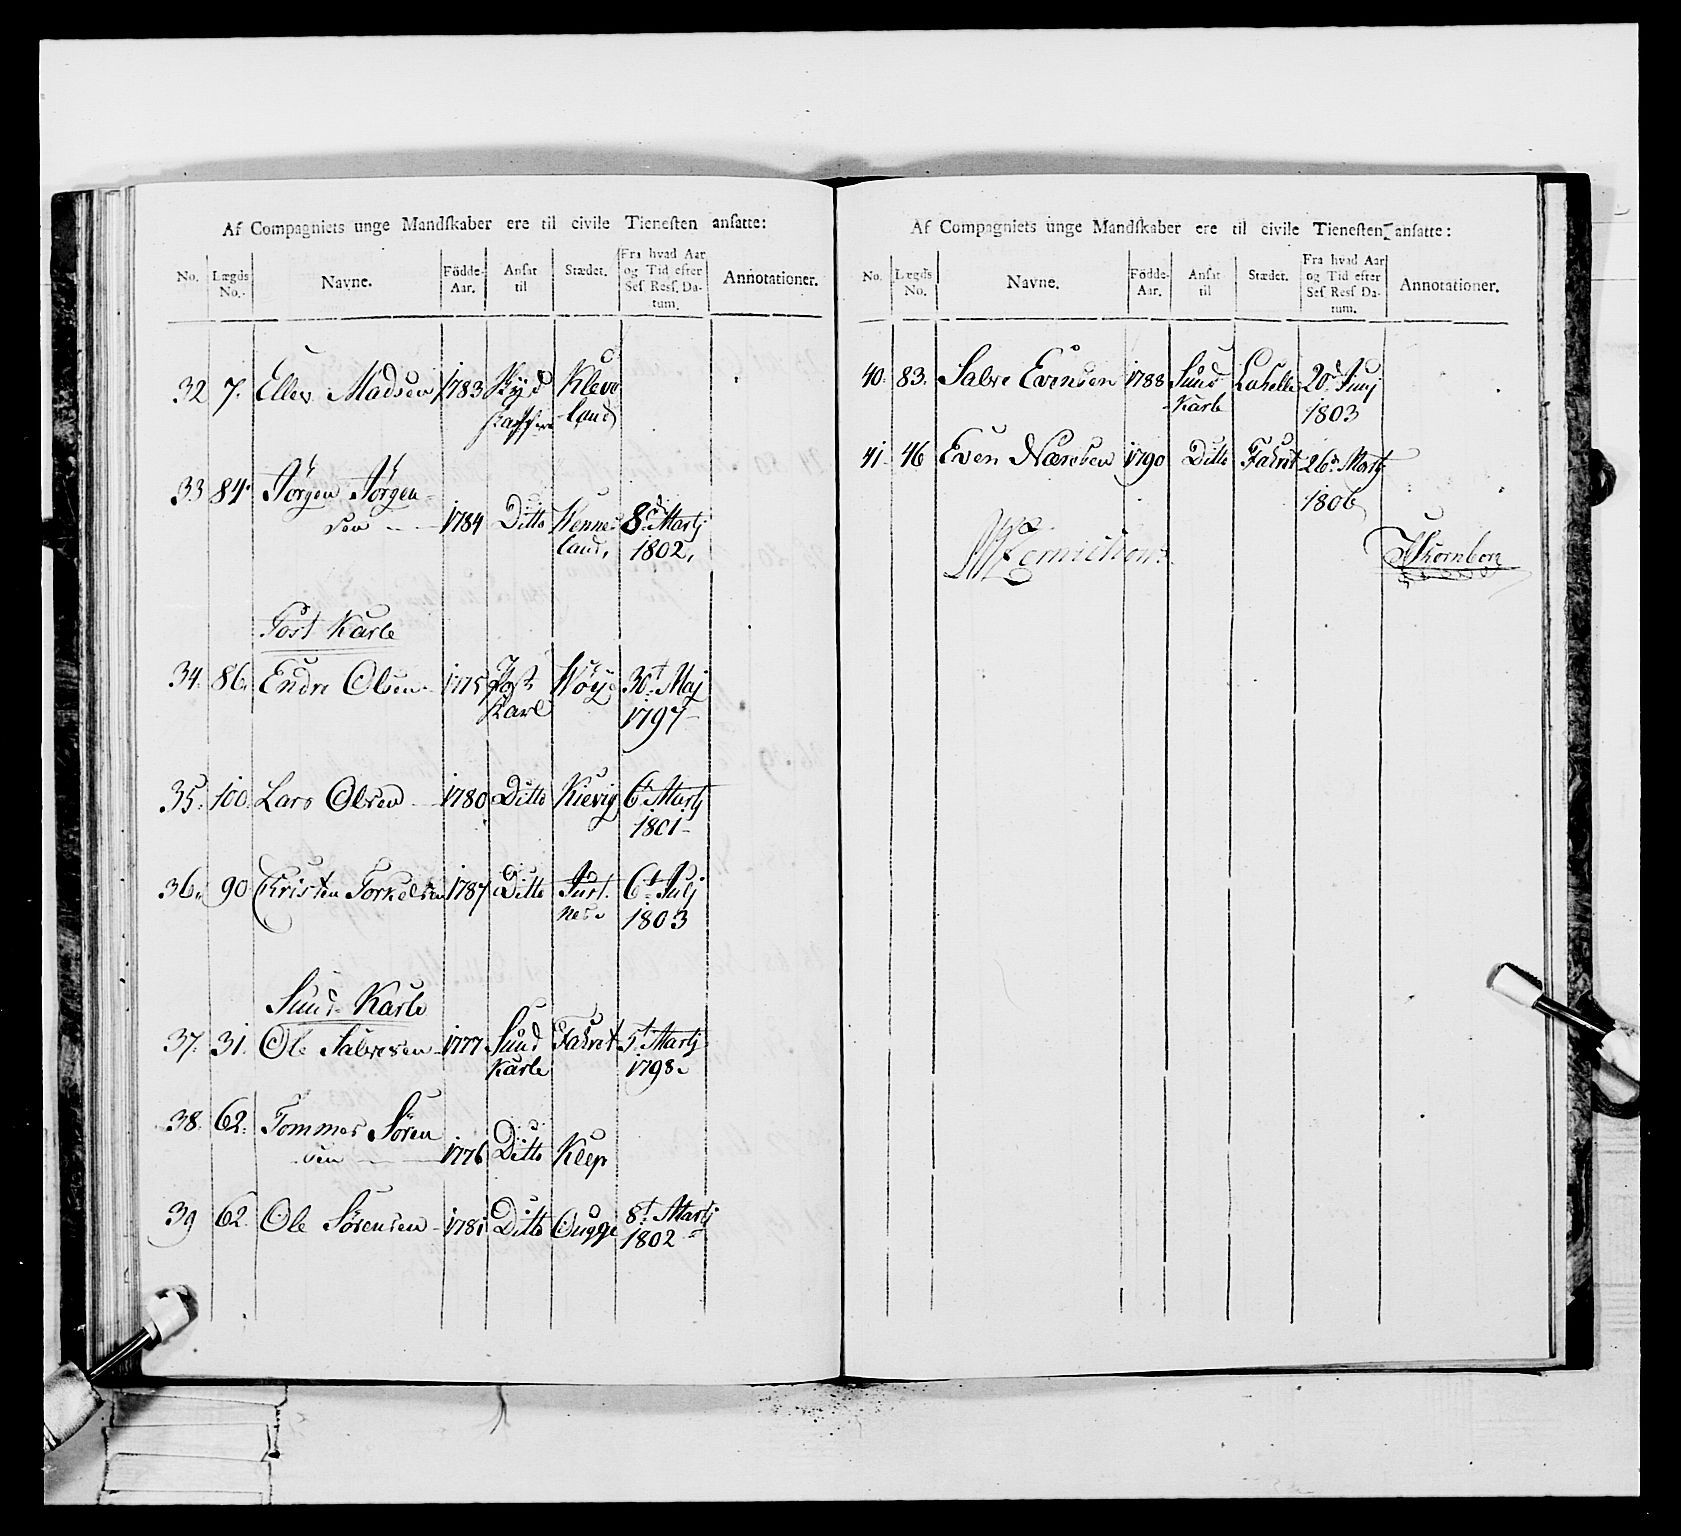 Af Compagniets unge Mandſkaber ere til civile Tieneſten anſatte:
No. Lægds No. Navne. Födde-Aar. Anſat til Stædet. Fra hvad Aar og Tid efter Seſ Resſ. Datum. Annotationer.
32 7. Ellev Madsen 1783 Skyd
Kleve
land
33 84. Jörgen Jörgen
sen 1784 Ditto Kenne
land, 8d Martj
1802.
Post Karle
34. 86. Endre Olsen 1775 Post
Karl Höye 30t Maj
1797
35. 100. Lars Olsen 1780 Ditto Kievig 6t Martj
1801
36. 90 Kristen Torkelsen 1787 Ditto
nes 6t Julj
1803
Sund Karle
37. 31. Ole Salvesen 1777 Sund
Karle Fahret 5t Martj
1798.
38. 62. Tommes Sören
sen 1776 Ditto Klep
39 62. Ole Sörensen 1781 Ditto Qugge 8t Martj
1802
Af Compagniets unge Mandſkaber ere til civile Tieneſten anſatte:
No. Lægds No. Navne. Födde-Aar. Anſat til Stædet. Fra hvad Aar og Tid efter Seſ Resſ Datum. Annotationer.
40. 83. Salve Evensen 1788 Sund
Karle Lahelle 20d Junj
1803
41. 46 Even Næresen 1790 Ditto Fahret 26d Martj
1806